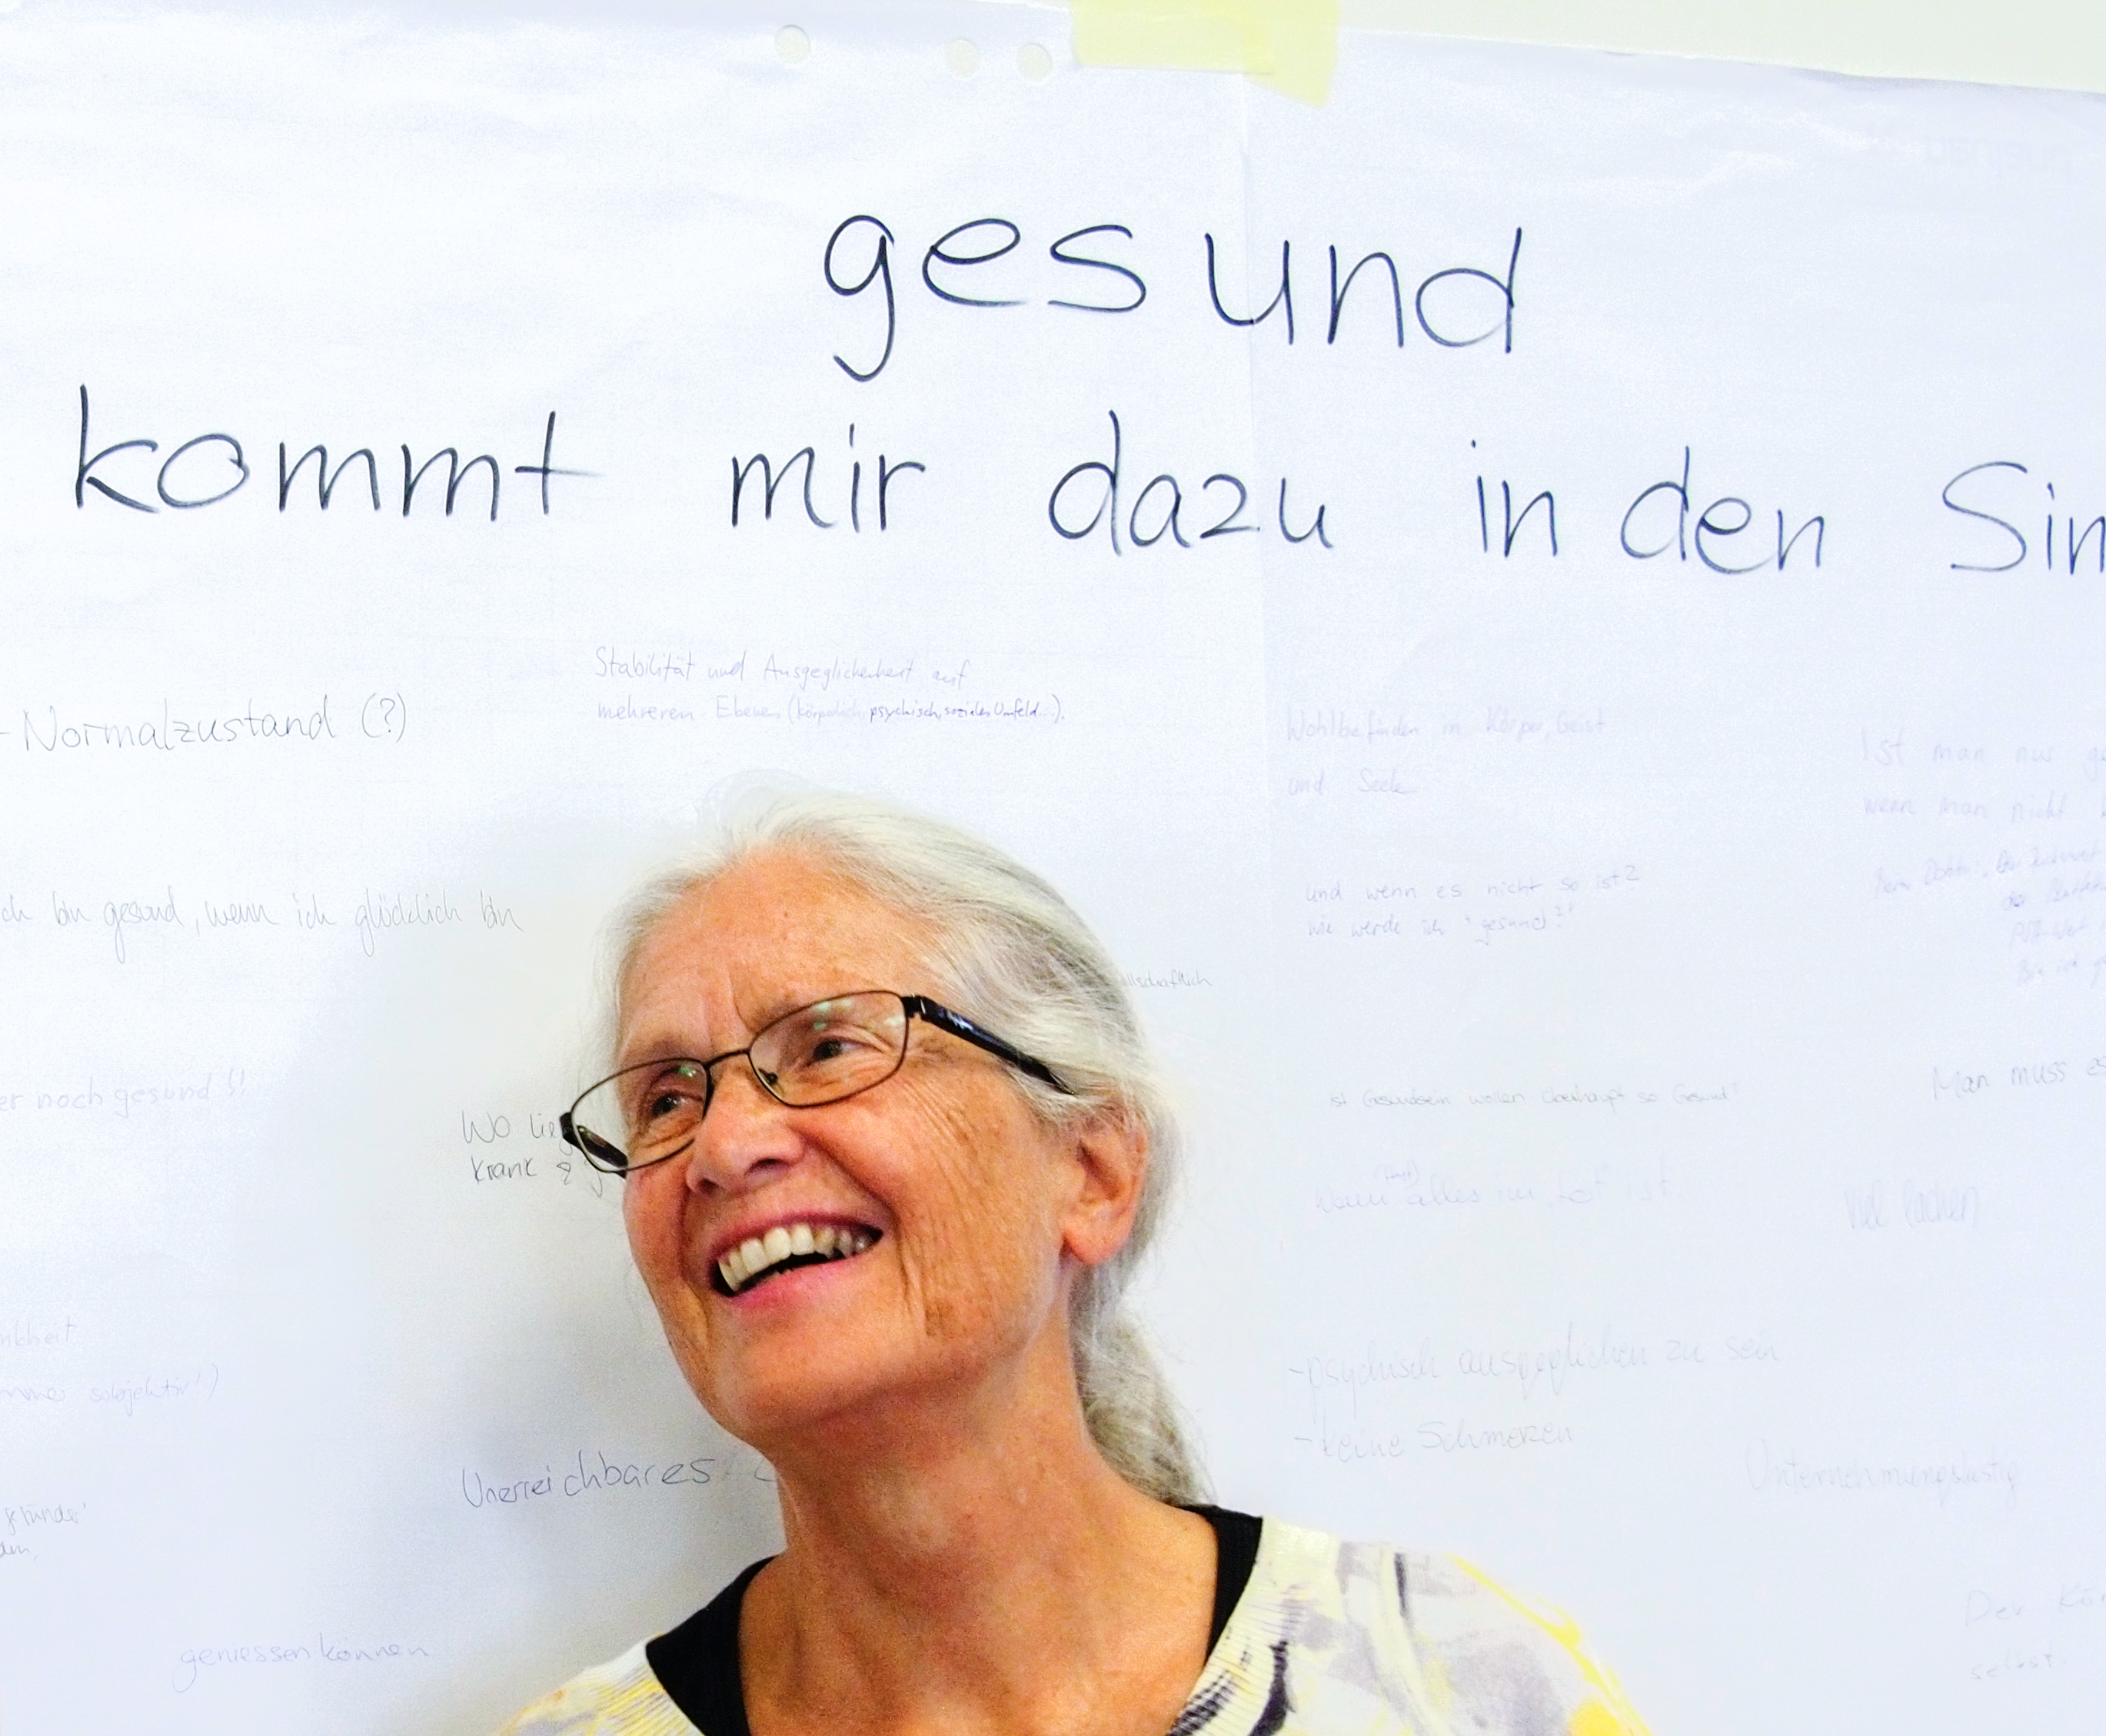 gesund
kommt mir dazu in den Sin
Stabilität und Ausgeglichenheit auf
mehreren Ebenen (körperlich, psychisch, soziales Umfeld...).
- Normalzustand (?)
Wohlbefinden in Körper, Geist
und Seele
Ist man nur ge
wenn man nicht
ch bin gesund, wenn ich glücklich bin
und wenn es nicht so ist?
wie werde ich "gesund?"
llschaftlich
er noch gesund!!
Wo lie
krank &
ist Gesundsein wollen überhaupt so Gesund?
Man muss es
Wenn alles im Lot ist
viel lachen
nkheit
mmer subjektiv!)
- psychisch ausgeglichen zu sein
- keine Schmerzen
Unerreichbares
Unternehmungslustig
geniessen können
Der Kör
selbst.